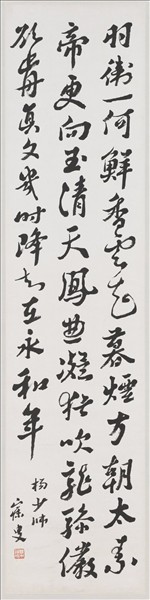 羽衛一何鮮香雲起暮煙方朝太素
帝更向玉清天鳳曲凝猶吹龍驂儼
欲前真文幾時降知在永和年
楊少師
寐叟